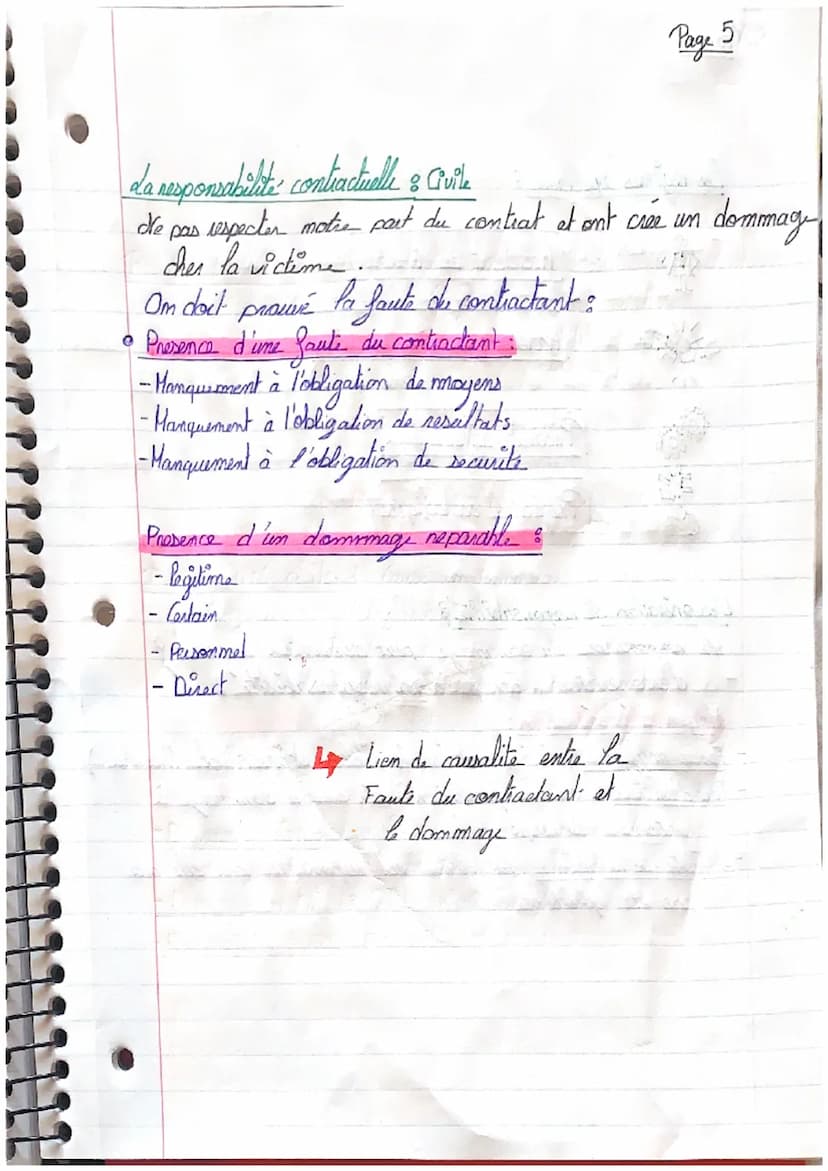 Page 5
La responsabilité contractuelle : Civile
Ne pas respecter notre part du contrat et ont crée un dommage
chez la victime.
On doit prouvé la faute du contractant :
Presence d'une faute du contractant :
- Manquement à l'obligation de moyens
- Manquement à l'obligation de resultats
- Manquement à l'obligation de securite
Presence d'un dommage reparable :
- legitime
- Certain
- Personnel
- Direct
↳ Lien de causalité entre la
Faute du contractant et
le dommage